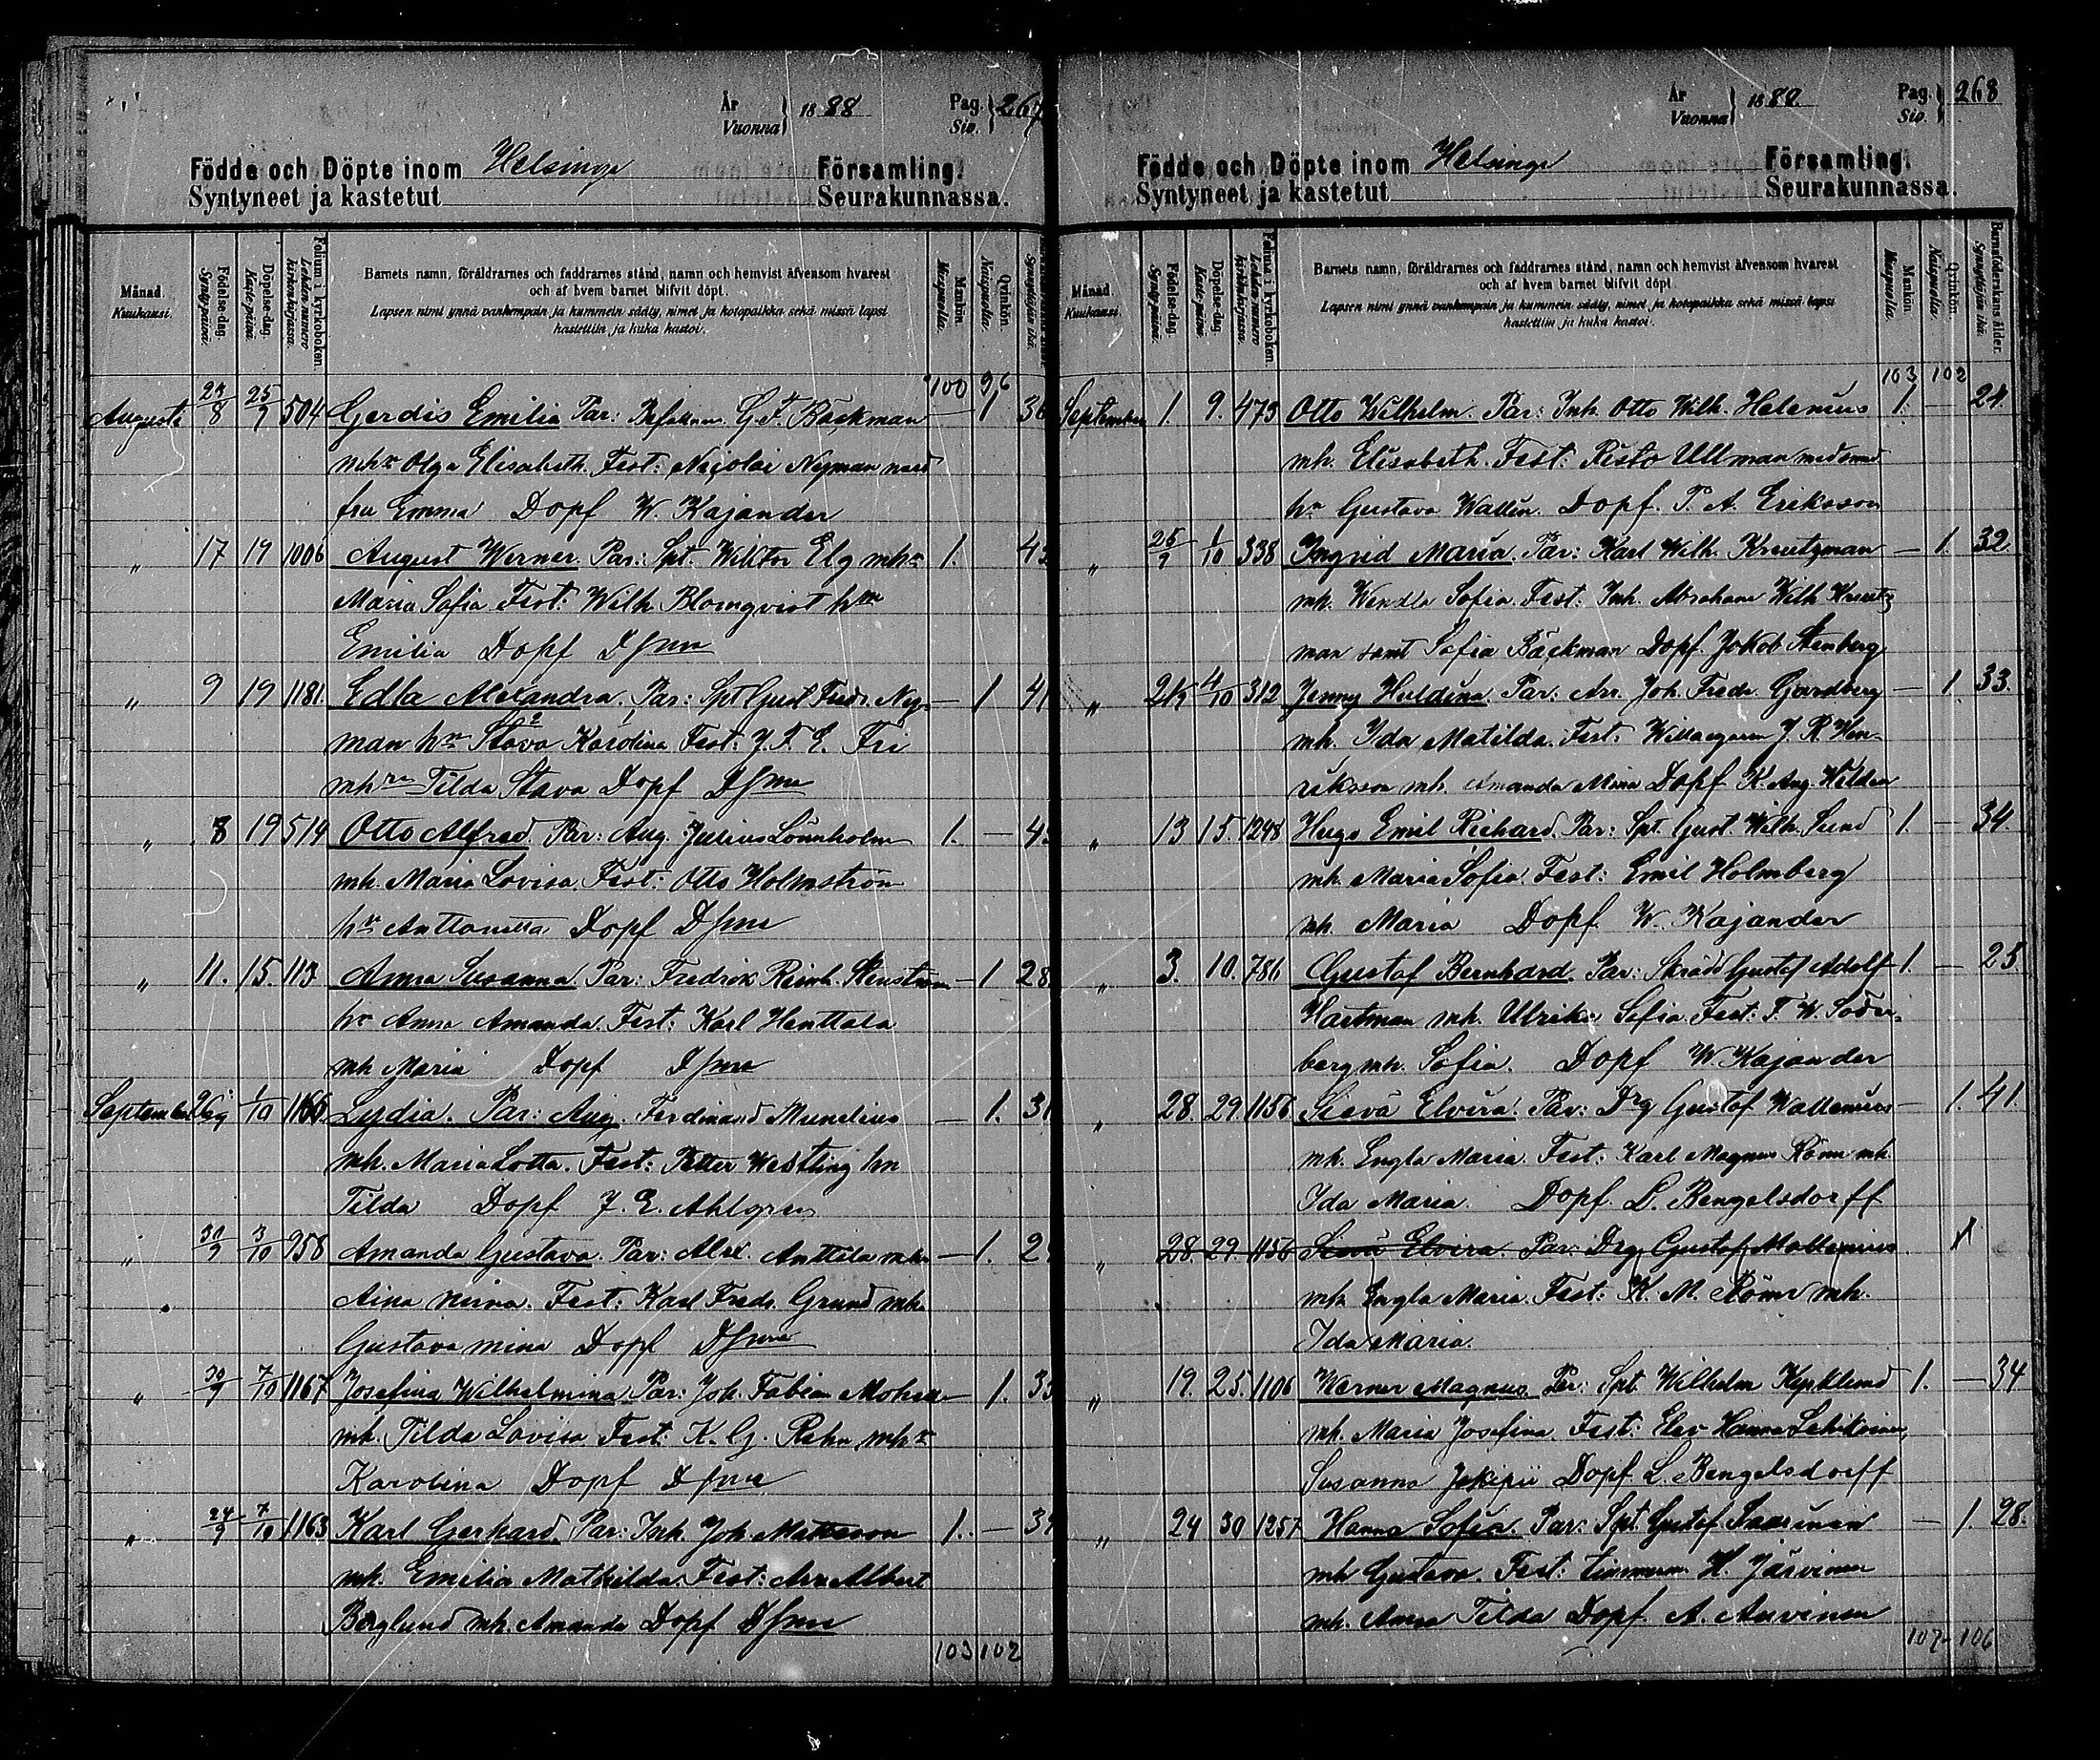 År
Vuonna } 1888 Pag. Siv. } 267
Födde och Döpte inom Helsinge Församling.
Syntyneet ja kastetut Seurakunnassa.
Månad. Kuukausi. Födelse-dag. Syntypäivä. Döpelse-dag. Kastepäivä. Folium i kyrkoboken. Lehden numero kirkonkirjassa.
Barnets namn, föräldrarnes och faddrarnes stånd, namn och hemvist äfvensom hvarest
och af hvem barnet blifvit döpt.
Lapsen nimi ynnä vanhempain ja kummein sääty, nimet ja kotopaikka sekä missä lapsi
kastettiin ja kuka kastoi.
Mankön. Miespuolia. Qvinkön. Naispuolia. Synnyttäjän ikä.
100 96
Augusti 24/8 25/9 504 Gerdis Emilia Par: G. F. Bäckman — 1 36
mhr Olga Elisabeth. Fest: Nejolai Nyman med
fru Emma Dopf W. Kajander
" 17 19 1006 August Werner. Par: Spt. Wiktor Elg mhr 1. 43
Maria Sofia Fest: Wilh. Blomqvist hm
Emilia Dopf Dsme
" 9 19 1181. Edla Alexandra. Par: Spt Gust Fredr. Ny- — 1 41
man hn Stava Karolina Fest: J. F. E. Fri
mhrn Tilda Stava Dopf Dsme
" 8 19 514 Otto Alfred Par: Aug. Julius Lönnholm 1. — 43
mh. Maria Lovisa Fest: Otto Holmström
hr Anttonetta Dopf Dsme
" 11. 15. 113 Anna Susanna. Par: Fredrik Reinh. Stenström — 1 28
hr Anna Amanda. Fest: Karl Henttala
mh Maria Dopf Dsme
September 26/9 1/10 1166 Lydia. Par: Aug. Ferdinand Munelius — 1. 31
mh. Maria Lotta. Fest: Petter Westling hn
Tilda Dopf J. E. Ahlgren
" 30/9 3/10 958 Amanda Gustava. Par: Alex. Anttila mhr — 1. 2
Aina Mina. Fest: Karl Fredr. Grund mhr
Gustava Mina Dopf Dsme
" 30/9 7/10 1167 Josefina Wilhelmina. Par: Joh. Fabian Mohell — 1. 33
mh. Tilda Lovisa Fest: K. G. Rehn mhr
Karolina Dopf Dsme
" 24/9 7/10 1163 Karl Gerhard. Par: Inh. Joh. Mattsson 1. — 39
mh. Emilia Mathilda. Fest: Arr Albert
Berglund mh. Amanda Dopf Dsme
103 102
År
Vuonna } 1888. Pag. Siv. } 268
Födde och Döpte inom Helsinge Församling.
Syntyneet ja kastetut Seurakunnassa.
Månad. Kuukausi. Födelse-dag. Syntypäivä. Döpelse-dag. Kaste-päivä. Folium i kyrkoboken. Lehden numero kirkonkirjassa.
Barnets namn, föräldrarnes och faddrarnes stånd, namn och hemvist äfvensom hvarest
och af hvem barnet blifvit döpt.
Lapsen nimi ynnä vanhempain ja kummein sääty, nimet ja kotopaikka sekä missä lapsi
kastettiin ja kuka kastoi.
Mankön. Miespuolia. Qvinkön. Naispuolia. Barnaföderskans ålder. Synnyttäjän ikä.
103 102
September 1. 9. 473 Otto Wilhelm. Par: Inh. Otto Wilh. Helenius 1. — 24.
mh. Elisabeth. Fest: Risto Ullman med
hr Gustava Wallin. Dopf. P. A. Eriksson
" 26/9 1/10 338 Ingrid Maria. Par: Karl Wilh. Kreutzman — 1. 32
mh. Wendla Sofia. Fest: Inh. Abraham Wilh Kreutz
man samt Sofia Bäckman Dopf. Jakob Stenberg
" 4/10 312 Jenny Huldina. Par: Arr. Joh. Fredr. Gardberg — 1. 33.
mh. Ida Matilda. Fest: Willaegaren J. R. Hen-
riksson mh. Amanda Mina Dopf K. Aug. Wilden
" 13 15. 1248 Hugo Emil Richard. Par: Spt. Gust. Wilh. Sund 1. — 34.
mh. Maria Sofia. Fest: Emil Holmberg
mh. Maria Dopf. W. Kajander
" 3. 10. 786 Gustaf Bernhard. Par: Skrädd Gustaf Adolf 1. — 25
Hartman mh. Ulrika Sofia Fest: F. W. Söder-
berg mh. Sofia. Dopf W Kajander
" 28. 29. 1156 Sievä Elvira. Par: Drg Gustaf Wallenius — 1. 41.
mh. Engla Maria. Fest: Karl Magnus Römr mh.
Ida Maria. Dopf. L. Bengelsdorff
" 28. 29. 1156 Sievä Elvira. Par: Drg Gustaf Wallenius
mh Engla Maria. Fest: K. M. Römr mh.
Ida Maria.
" 19. 25. 1106 Werner Magnus. Par: Spt. Wilhelm Kyrklund 1. — 34
mh. Maria Josefina. Fest: Elev Hanna Lehikoinen,
Susanna Jokipii Dopf L. Bengelsdorff
" 24 30 1257 Hanna Sofia. Par: Spt Gustaf Saarinen — 1. 28.
mh Gustava. Fest: timmerm. H. Järvinen
mh. Anna Tilda Dopf A. Auvinen
107 - 106